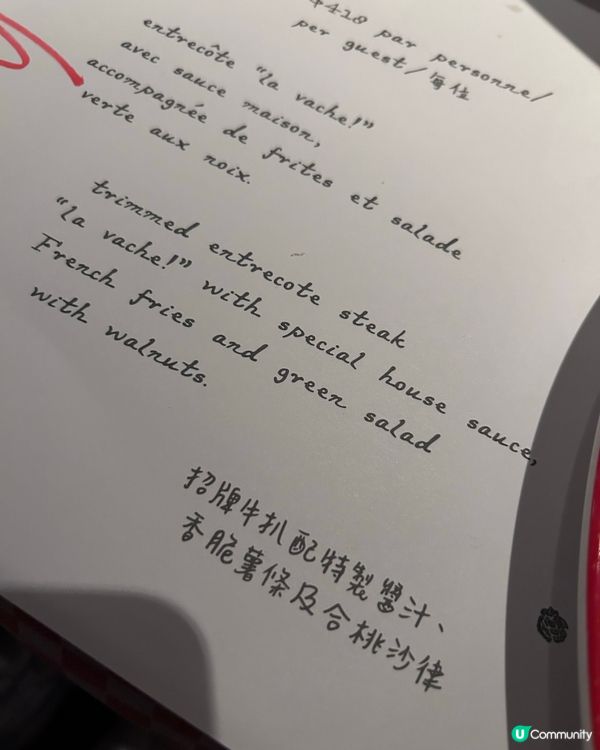 $428 par personne/
per guest/每位
entrecôte "la vache!"
avec sauce maison,
accompagnée de frites et salade
verte aux noix.
trimmed entrecote steak
"la vache!" with special house sauce,
French fries and green salad
with walnuts.
招牌牛扒配特製醬汁、
香脆薯條及合桃沙律
U Community